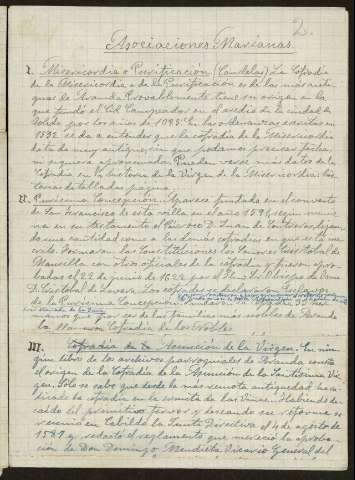 2.
Asociaciones Marianas.
I. Misericordia o Purificación (Candelas) La Cofradía
de la Misericordia o de la Purificación es de las más anti-
guas de Aranda. Probablemente tiene su origen en la
que fundó el Cid Campeador en el medio de la ciudad de
Toledo por los años de 1085. En las ordenanzas escritas en
1532 se da a entender que la cofradía de la Misericordia
data de muy antiguo, sin que podamos precisar fecha,
ni siquiera aproximada. Pueden verse más datos de la
Cofradía en la historia de la Virgen de la Misericordia: his-
torias detalladas página.
II. Purísima Concepción. Aparece fundada en el convento
de San Francisco de esta villa en el año 1596 según mani-
na en su testamento el Pbro. D. Juan de Contreras dejan-
do una cantidad como a las demás cofradías en que está
Formaron las Constituciones los Señores Cristóbal de
Mansilla con otros oficiales de la cofradía y fueron apro-
badas el 22 de junio de 1622 por el Ilmo. Sr. Obispo de Osma
D. Cristóbal de Lovera. Los cofrades se declararon Esclavos
de la Purísima Concepción
manos que por ser de las familias más nobles de Aranda
la llamaron Cofradía de los Nobles.
III. Cofradía de la Asunción de la Virgen. En nin-
gún libro de los archivos parroquiales de Aranda consta
el origen de la Cofradía de la Asunción de la Santísima Vir-
gen. Sólo se sabe que desde la más remota antigüedad ha ra-
dicado la cofradía en la ermita de las Viñas. Habiendo de-
caído el primitivo fervor y deseando su reforma se
reunió en Cabildo la Junta Directiva el 4 de agosto de
1587 y redactó el reglamento que mereció la aproba-
ción de Don Domingo Mendieta Vicario General del